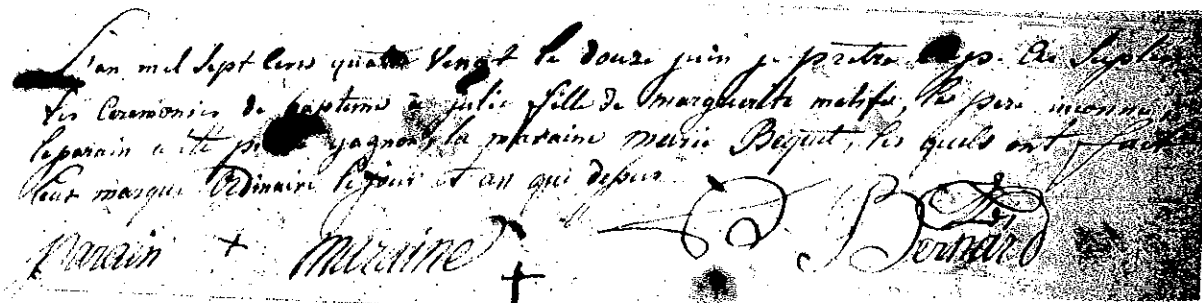 L'an mil Sept Cens quatre Vingt le douze juin je prêtre Cap. Ai Suplée
les Ceremonies de baptême à julie fille de marguerite metife, le pere inconnue
leparain a été gagnon, la maraine marie Bequet, les quels ont fait
leur marque Ordinaire le jour et an que desus
parain + maraine + Bernard